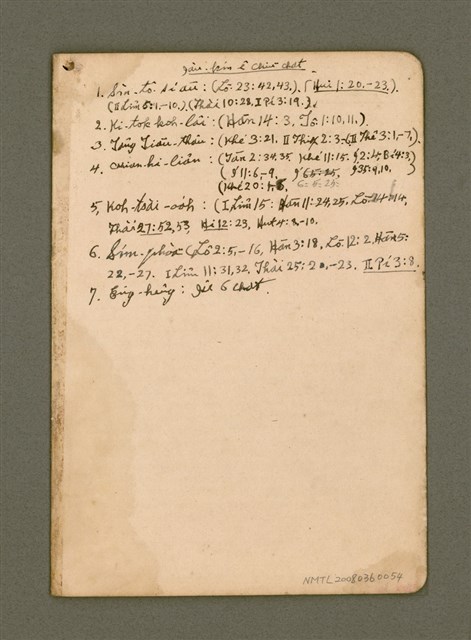 Jîn-kín ê Chiu chat
1. Sìn-tô͘ sí āu: (Lō͘ 23:42,43.). (Hui 1:20.-23.).
(II Lîm 5:1,-10.) (Thài 10:28, I Pí 3:19.).
2. Ki-tok koh-lâi: (Hān 14:3, Tō͘ 1:10,11.).
3. Tāng Tiān-thâu: (Khé 3:21. II Thiap 2:3-(II Thê 3:1,-7.).
4. Chian-hi-liân: (Tān 2:34,35. Khé 11:15.
( 11:6,-9. 65:25. 35:9,10. )
(Khé 20:1-6. 6:5:25:
5. Koh-tsāi-oah: (I Lîm 15: Hān 11:24,25. Lō͘ 14:14,
Thài 27:52,53, Hi 12:23, Hut 4:8-10.
6. Sím-phòaⁿ (Lō͘ 2:5,-16, Hān 3:18, Lō͘ 12:2, Hān 5:
22,-27. I Lîm 11:31,32, Thài 25:20,-23. II Pí 3:8.
7. Éng-hêng: Jîl 6 chat.
NMTL20080360054